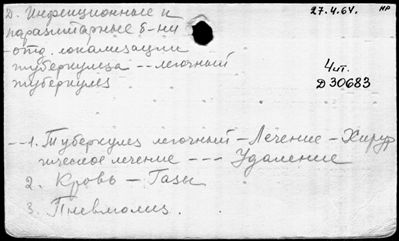 Д. Инфекционные и
паразитарные б-ни
-отд. локализации
туберкулеза -- легочный
туберкулез
27.4.64.
НР
4чт.
Д30683
--1. Туберкулез легочный - Лечение - Хирур
гическое лечение --- Удаление
2. Кровь - Газы
3. Пневмолиз.